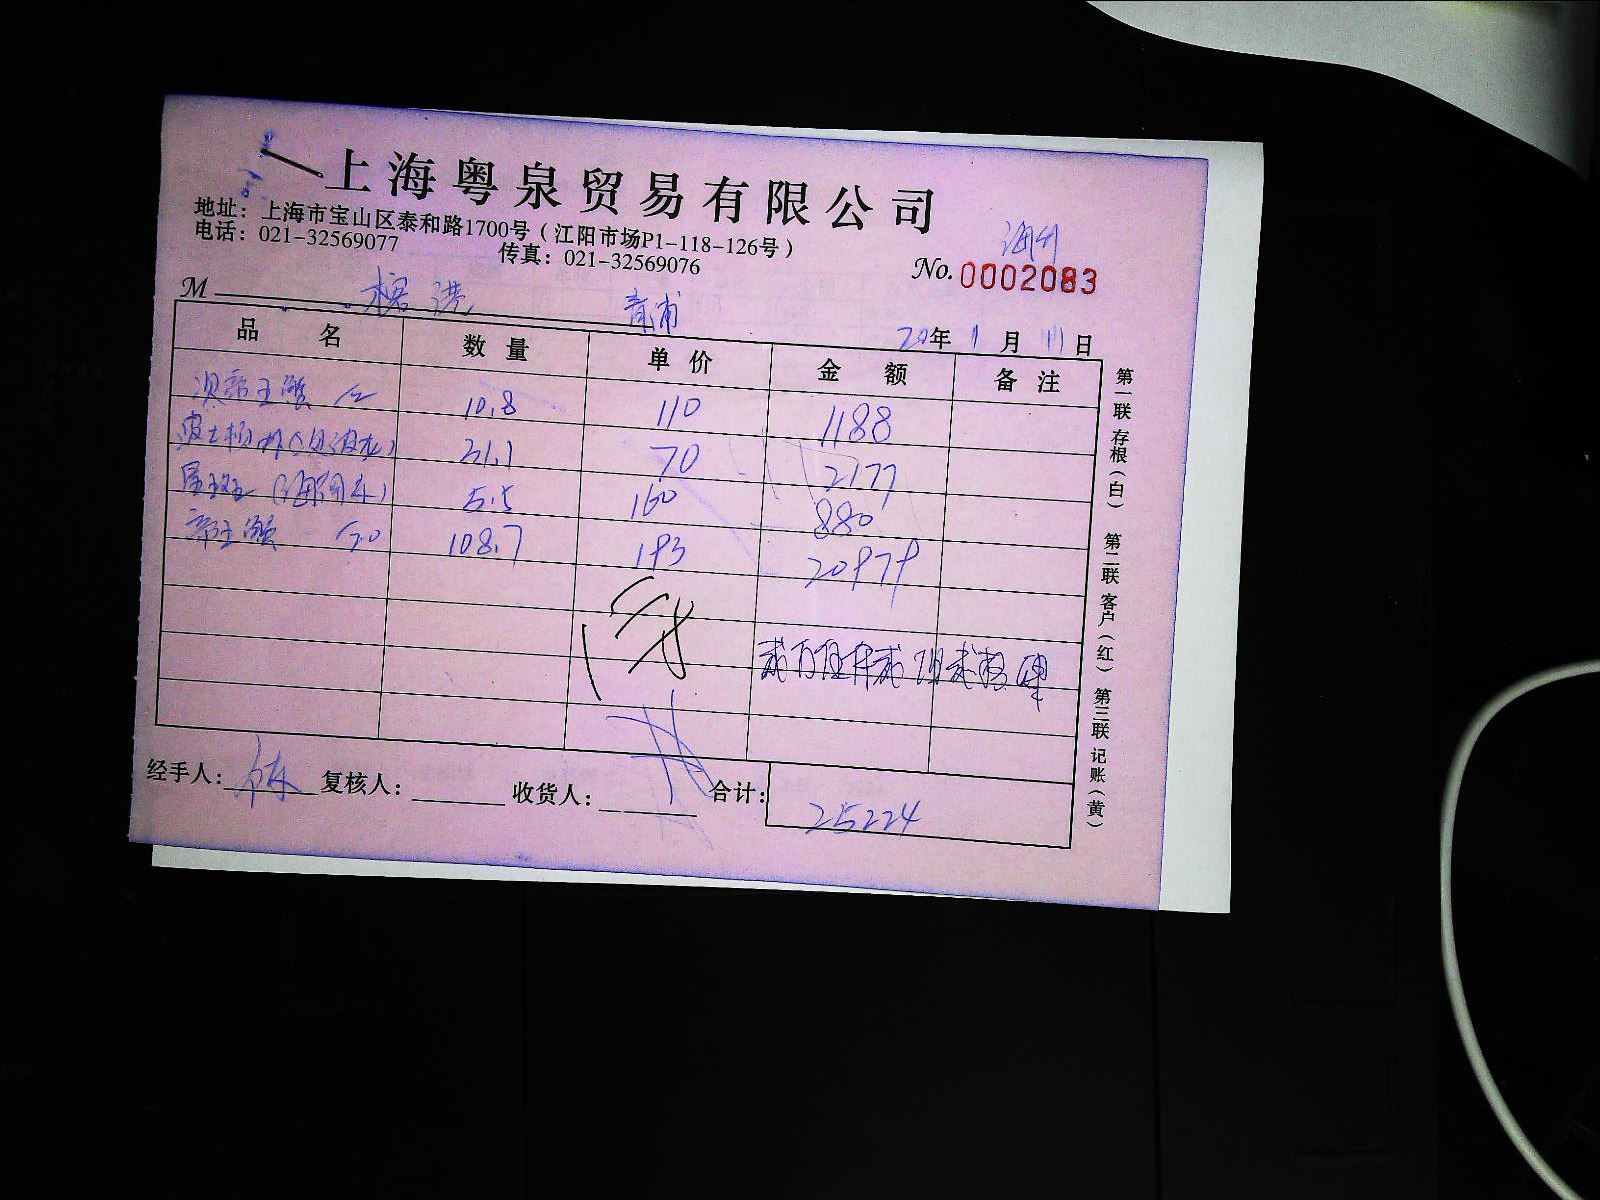 上海粤泉贸易有限公司
地址：上海市宝山区泰和路1700号（江阳市场P1-118-126号）
电话：021-32569077 传真：021-32569076
No. 0002083
M 港 青浦
20年 11月 11日
品 名 数 量 单 价 金 额 备 注
次帝王蟹 10.8 110 1188
波士顿 31.1 70 2177
星斑 5.5 160 880
帝王蟹 108.7 193 20979
贰万伍仟贰佰贰拾肆
经手人： 复核人： 收货人： 合计： 25224
第一联 存根（白） 第二联 客户（红） 第三联 记账（黄）